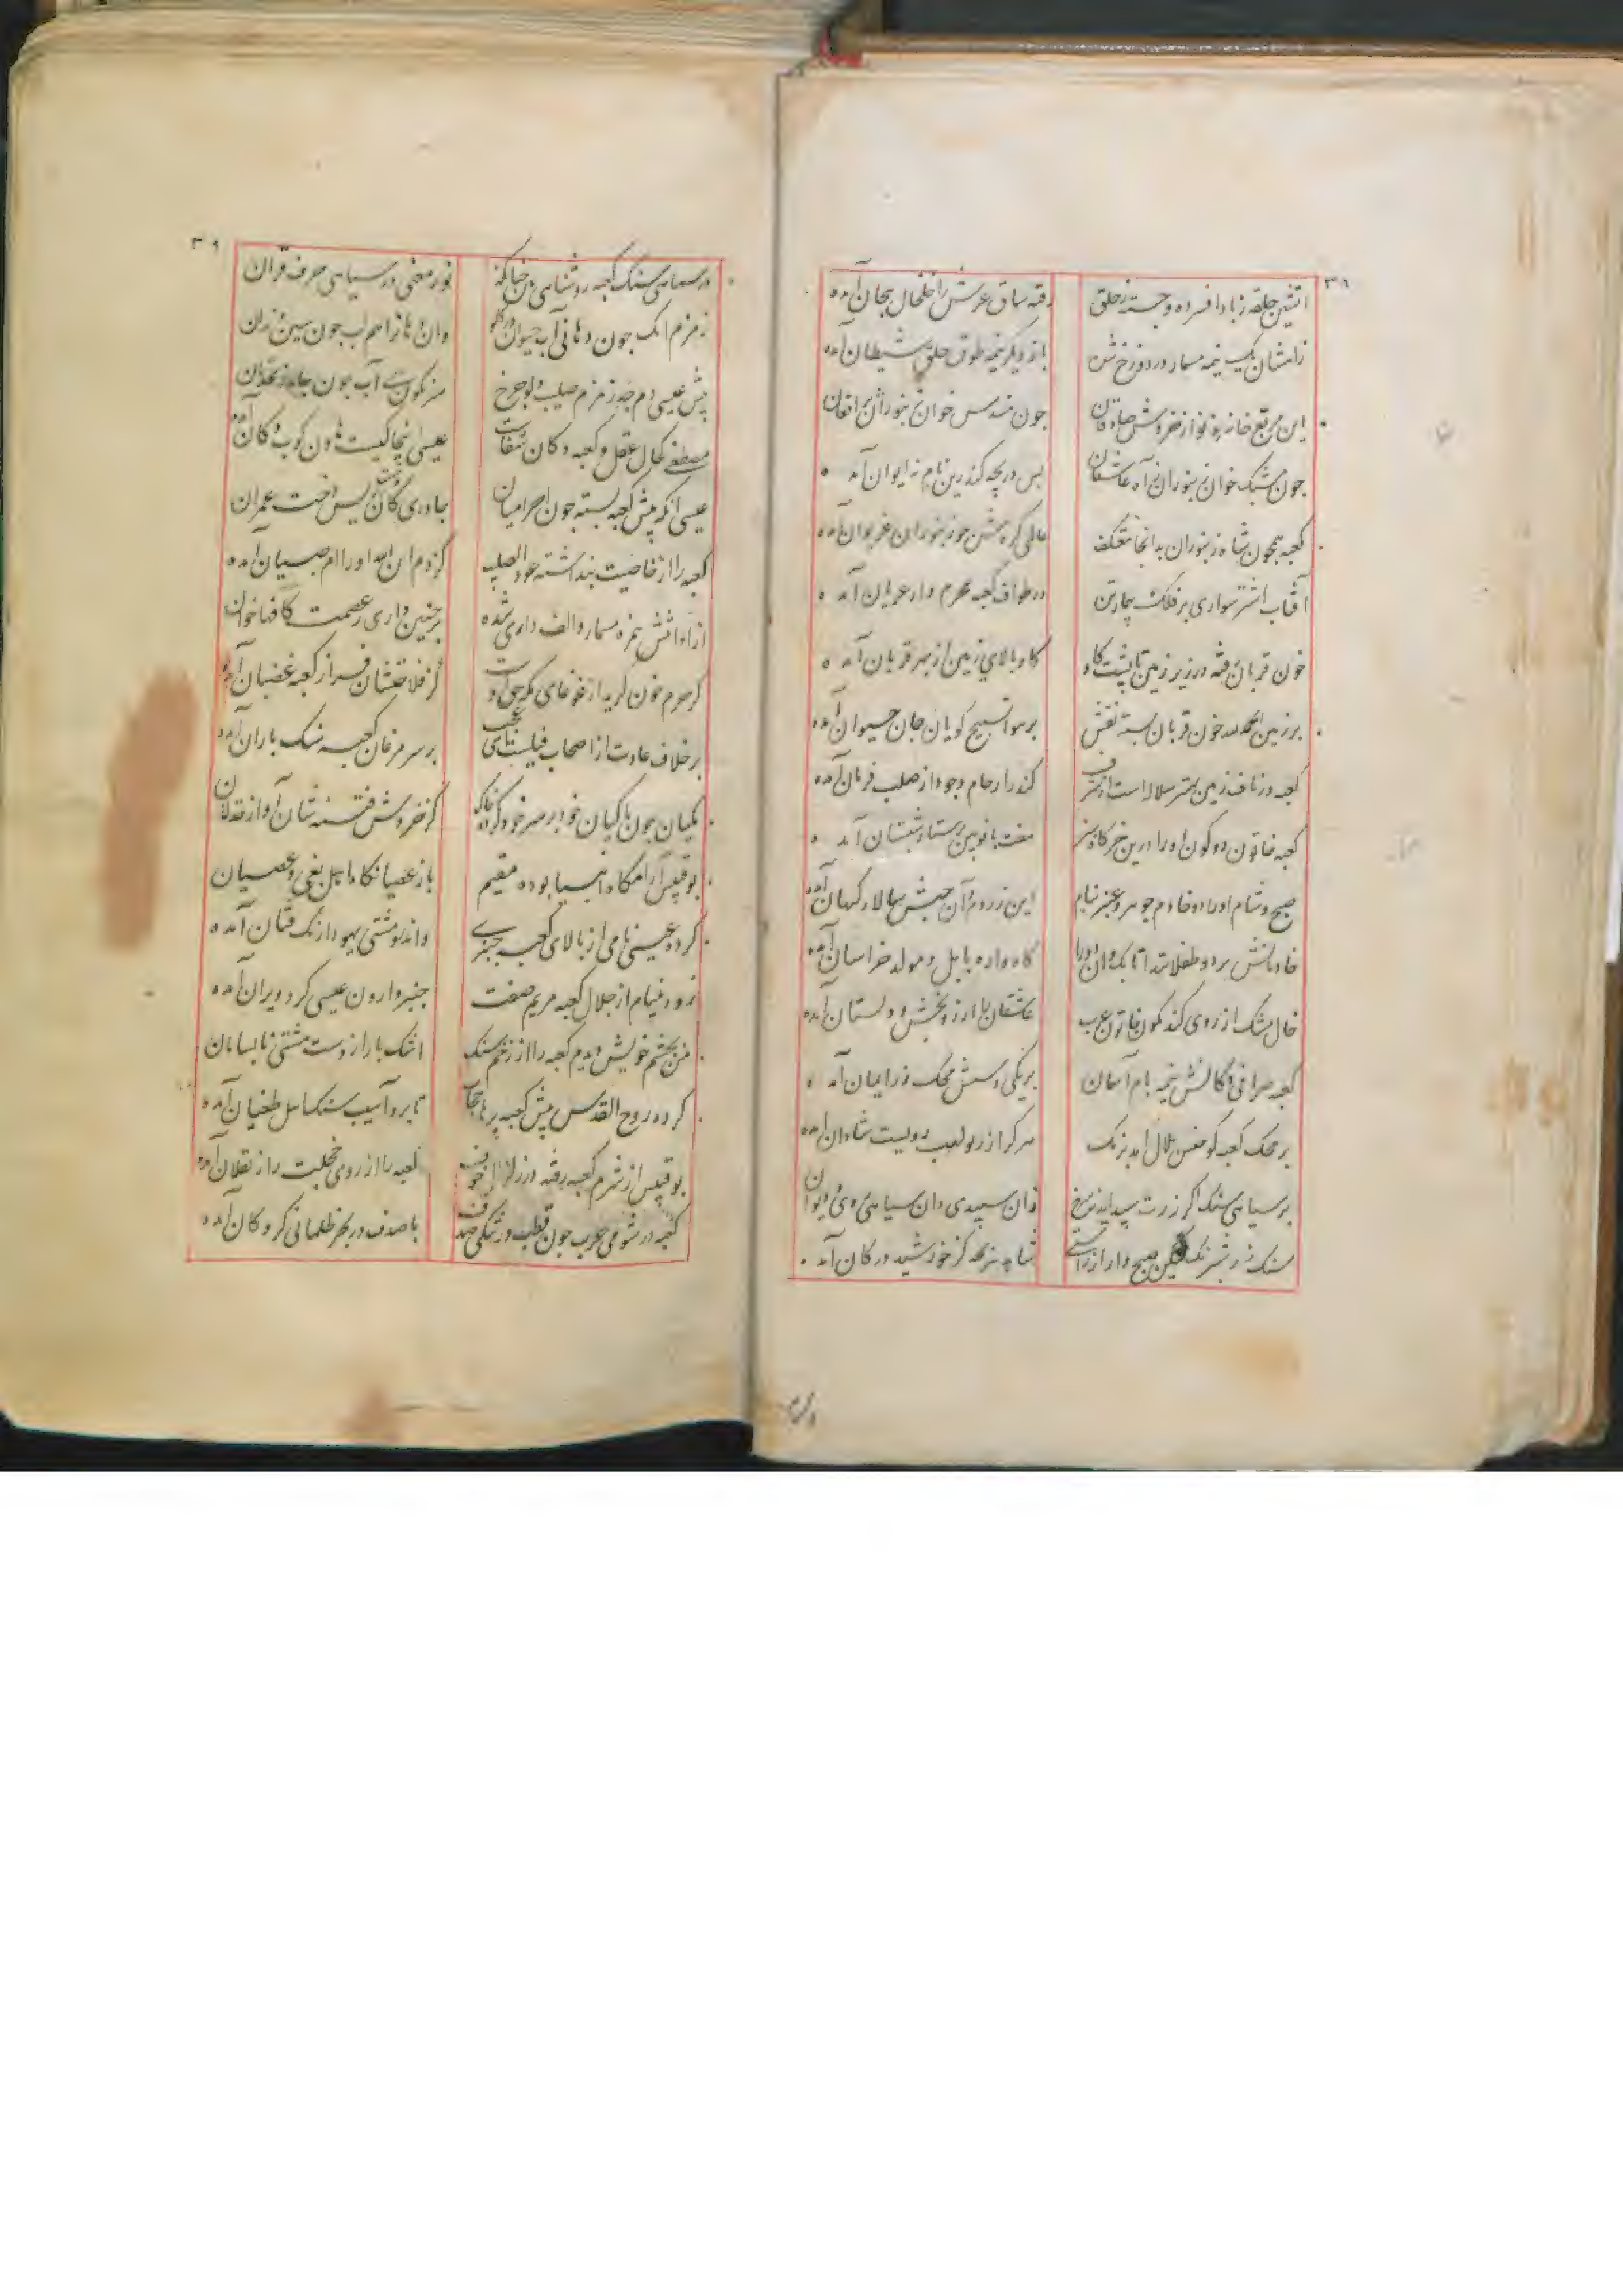 ۳۸
آتشین حلقه ز باد افسرده و جسته ز حلق
رفته ساق عرش را خلخال پیچان آمده
زامشان یک نیمه مسمار در دوزخ شده
باز دیکر نیمه طوق حلق شیطان آمده
این مربع خانه نو از خروش صادقان
جون مسدس خوان زنبوران پر افغان
جون مشبک خوان زنبوران ز آه عاشقان
بس دریچه کندرین بام نه ایوان آمده
کعبه همچون شاه زنبوران بدانجا معتکف
عالمی کردش جو زنبوران غریوان آمده
آفتاب اشتر سواری بر فلک بیمارتن
در طواف کعبه محرم وار عریان آمده
خون قربان رفته در زیر زمین تا پشت کاو
کاو بالای زمین از بهر قربان آمده
بر زمین الحمد لله خون قربان بسته نقش
بر هوا تسبیح کویان جان حیوان آمده
کعبه در ناف زمین بهتر سلاله است از شرف
کندر ارحام وجود از صلب فرمان آمده
کعبه خاتون دو کون او را درین خرکاه سبز
هفت بانو بین پرستار شبستان آمده
صبح و شام او را دو خادم جوهر و عنبر بنام
این ز روم و آن ز حبش سالار کیهان آمده
خادمانش بر دو طفلانند اتابک وان دو را
کاهواره بابل و مولد خراسان آمده
خال مشک از روی کندمکون خاتون عرب
عاشقان را آرزوبخش و دلستان آمده
کعبه صرافی دکانش نیمه بام آسمان
بر یکی دستش محک زر ایمان آمده
بر محک کعبه کو جنس بلال آمد برنک
هرکرا زر بولهب رویست شادان آمده
بر سیاهی سنک اگر زرت سپید آید نه سرخ
زان سپیدی دان سیاهی روی دیوان
سنک زر شبرنک لیکن صبح وار از راستی
شاهد هر بچه کز خورشید در کان آمده
۳۹
در سیاهی سنک کعبه روشنایی بین جنانکه
نور معنی در سیاهی حرف قران
زمزم آنک جون دهانی آب حیوان در کلو
وان دهان را میم لب جون سین دندان
پیش عیسی دم جه زمزم صلیب دلو جرخ
سرنکون بی آب جون جاه زنخدان
مصطفی کحال عقل و کعبه دکان شفاست
عیسی اینجا کیست هاون کوب دکان آمده
عیسی آنکه پیش کعبه بسته جون احرامیان
جادری کان دست ریس دخت عمران
کعبه را از خاصیت پنداشته عود الصلیب
کز دم ابن الله او را ام صبیان آمده
از اذا شمس همزه مسمار و الف داری شده
بر جنین داری ز عصمت کافها خوان
کر حرم خون کرید از غوغای مکه حق اوست
کز فلاخنشان فراز کعبه غضبان آمده
بر خلاف عادت از اصحاب فیلست ای عجب
بر سر مرغان کعبه سنک باران آمده
مکیان جون ماکیان خود بر سر خود کرده خاک
کز خروش فتنه شان آواز خذلان
بوقبیس آرامکاه انبیا بوده مقیم
باز عصیانکاه اهل بغی و عصیان
کرده عیسی نامی از بالای کعبه خیبری
واندرو مشتی یهودی رنک فتان آمده
زود بینام از جلال کعبه مریم صفت
خیبر وارون عیسی کرد ویران آمده
من بچشم خویش دیدم کعبه را از زخم سنک
اشک بار از دست مشتی نابسامان
کرده روح القدس پیش کعبه پرها حجاب
تا برو آسیب سنک اهل طغیان آمده
بوقبیس از شرم کعبه رفته در زلزال خوف
کعبه را از روی خجلت راز نقلان آمده
کعبه در شومی عرب جون قطب در تنکی صدف
یا صدف در بحر ظلمانی کروکان آمده